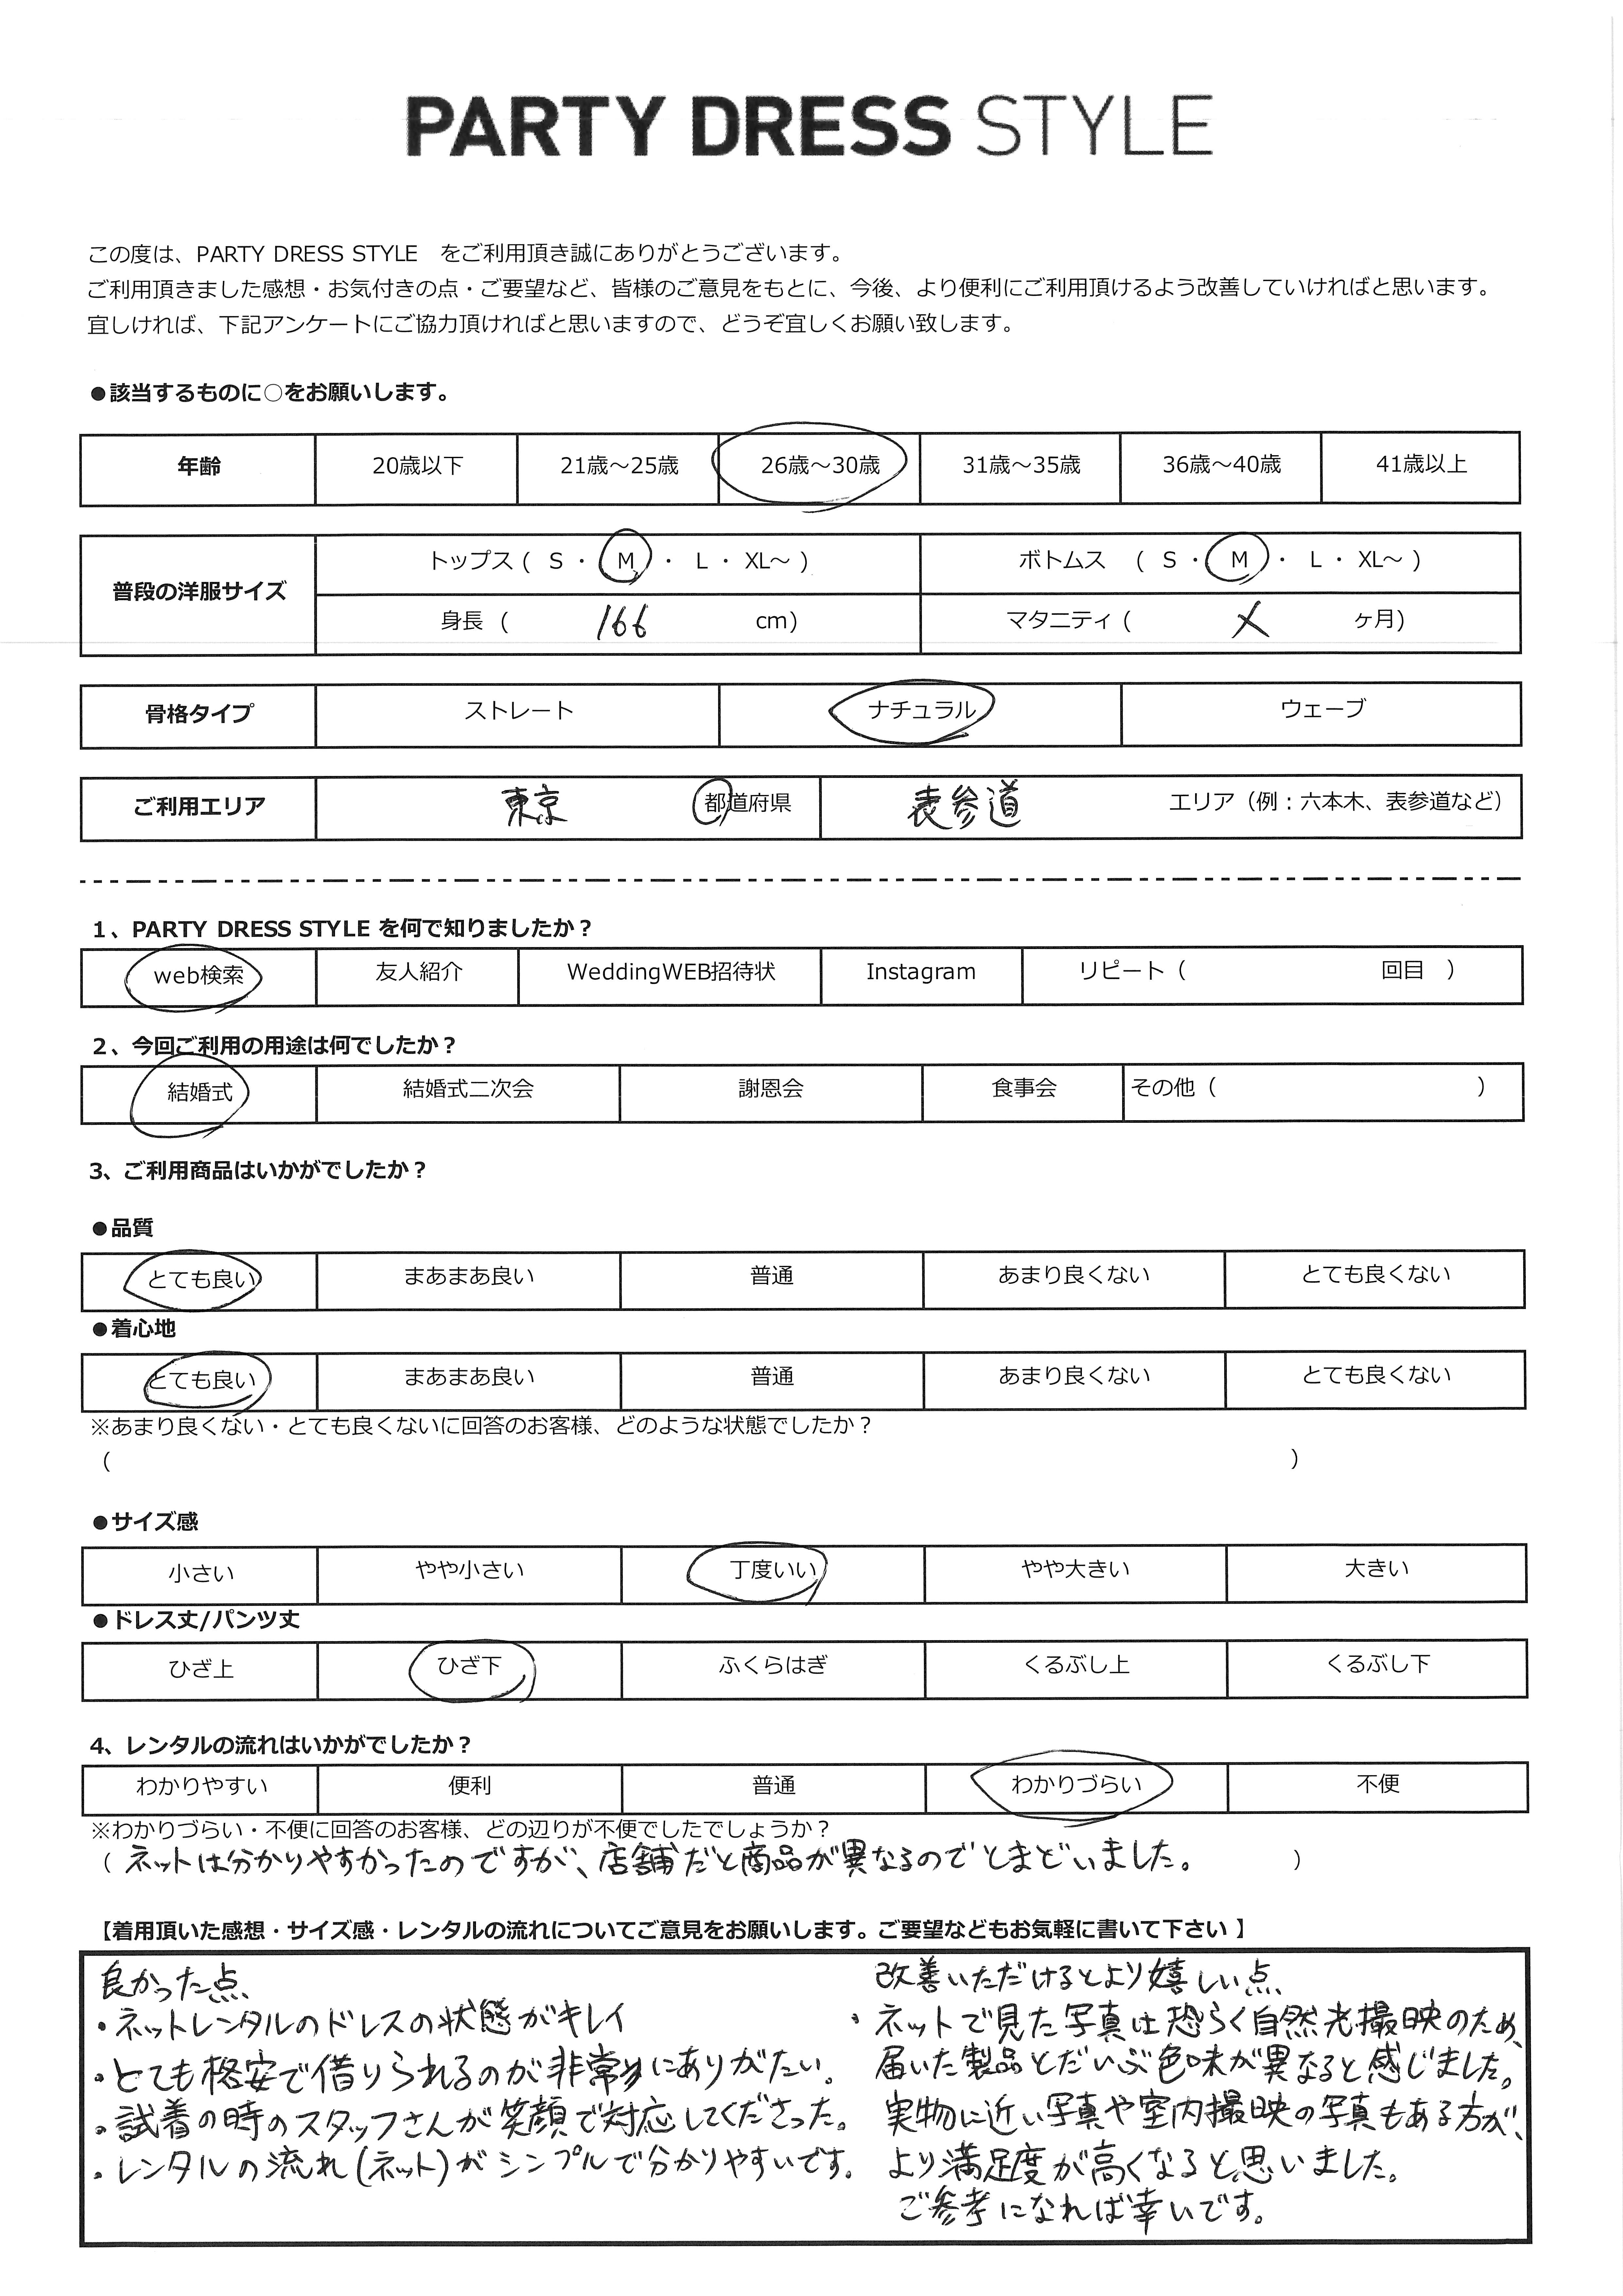 PARTY DRESS STYLE
この度は、PARTY DRESS STYLE　をご利用頂き誠にありがとうございます。
ご利用頂きました感想・お気付きの点・ご要望など、皆様のご意見をもとに、今後、より便利にご利用頂けるよう改善していければと思います。
宜しければ、下記アンケートにご協力頂ければと思いますので、どうぞ宜しくお願い致します。
●該当するものに○をお願いします。
年齢 20歳以下 21歳～25歳 26歳～30歳 31歳～35歳 36歳～40歳 41歳以上
普段の洋服サイズ トップス ( S ・ M ・ L ・ XL～ ) ボトムス ( S ・ M ・ L ・ XL～ )
身長 ( 166 cm) マタニティ ( × ヶ月)
骨格タイプ ストレート ナチュラル ウェーブ
ご利用エリア 東京 都道府県 表参道 エリア（例：六本木、表参道など）
1、PARTY DRESS STYLE を何で知りましたか？
web検索 友人紹介 WeddingWEB招待状 Instagram リピート（ 回目 ）
2、今回ご利用の用途は何でしたか？
結婚式 結婚式二次会 謝恩会 食事会 その他（ ）
3、ご利用商品はいかがでしたか？
●品質
とても良い まあまあ良い 普通 あまり良くない とても良くない
●着心地
とても良い まあまあ良い 普通 あまり良くない とても良くない
※あまり良くない・とても良くないに回答のお客様、どのような状態でしたか？
( )
●サイズ感
小さい やや小さい 丁度いい やや大きい 大きい
●ドレス丈/パンツ丈
ひざ上 ひざ下 ふくらはぎ くるぶし上 くるぶし下
4、レンタルの流れはいかがでしたか？
わかりやすい 便利 普通 わかりづらい 不便
※わかりづらい・不便に回答のお客様、どの辺りが不便でしたでしょうか？
( ネットは分かりやすかったのですが、店舗だと商品が異なるのでとまどいました。 )
【着用頂いた感想・サイズ感・レンタルの流れについてご意見をお願いします。ご要望などもお気軽に書いて下さい 】
良かった点、
・ネットレンタルのドレスの状態がキレイ
・とても格安で借りられるのが非常にありがたい。
・試着の時のスタッフさんが笑顔で対応してくださった。
・レンタルの流れ(ネット)がシンプルで分かりやすいです。
改善いただけるとより嬉しい点、
・ネットで見た写真は恐らく自然光撮映のため、
届いた製品とだいぶ色味が異なると感じました。
実物に近い写真や室内撮映の写真もある方が、
より満足度が高くなると思いました。
ご参考になれば幸いです。